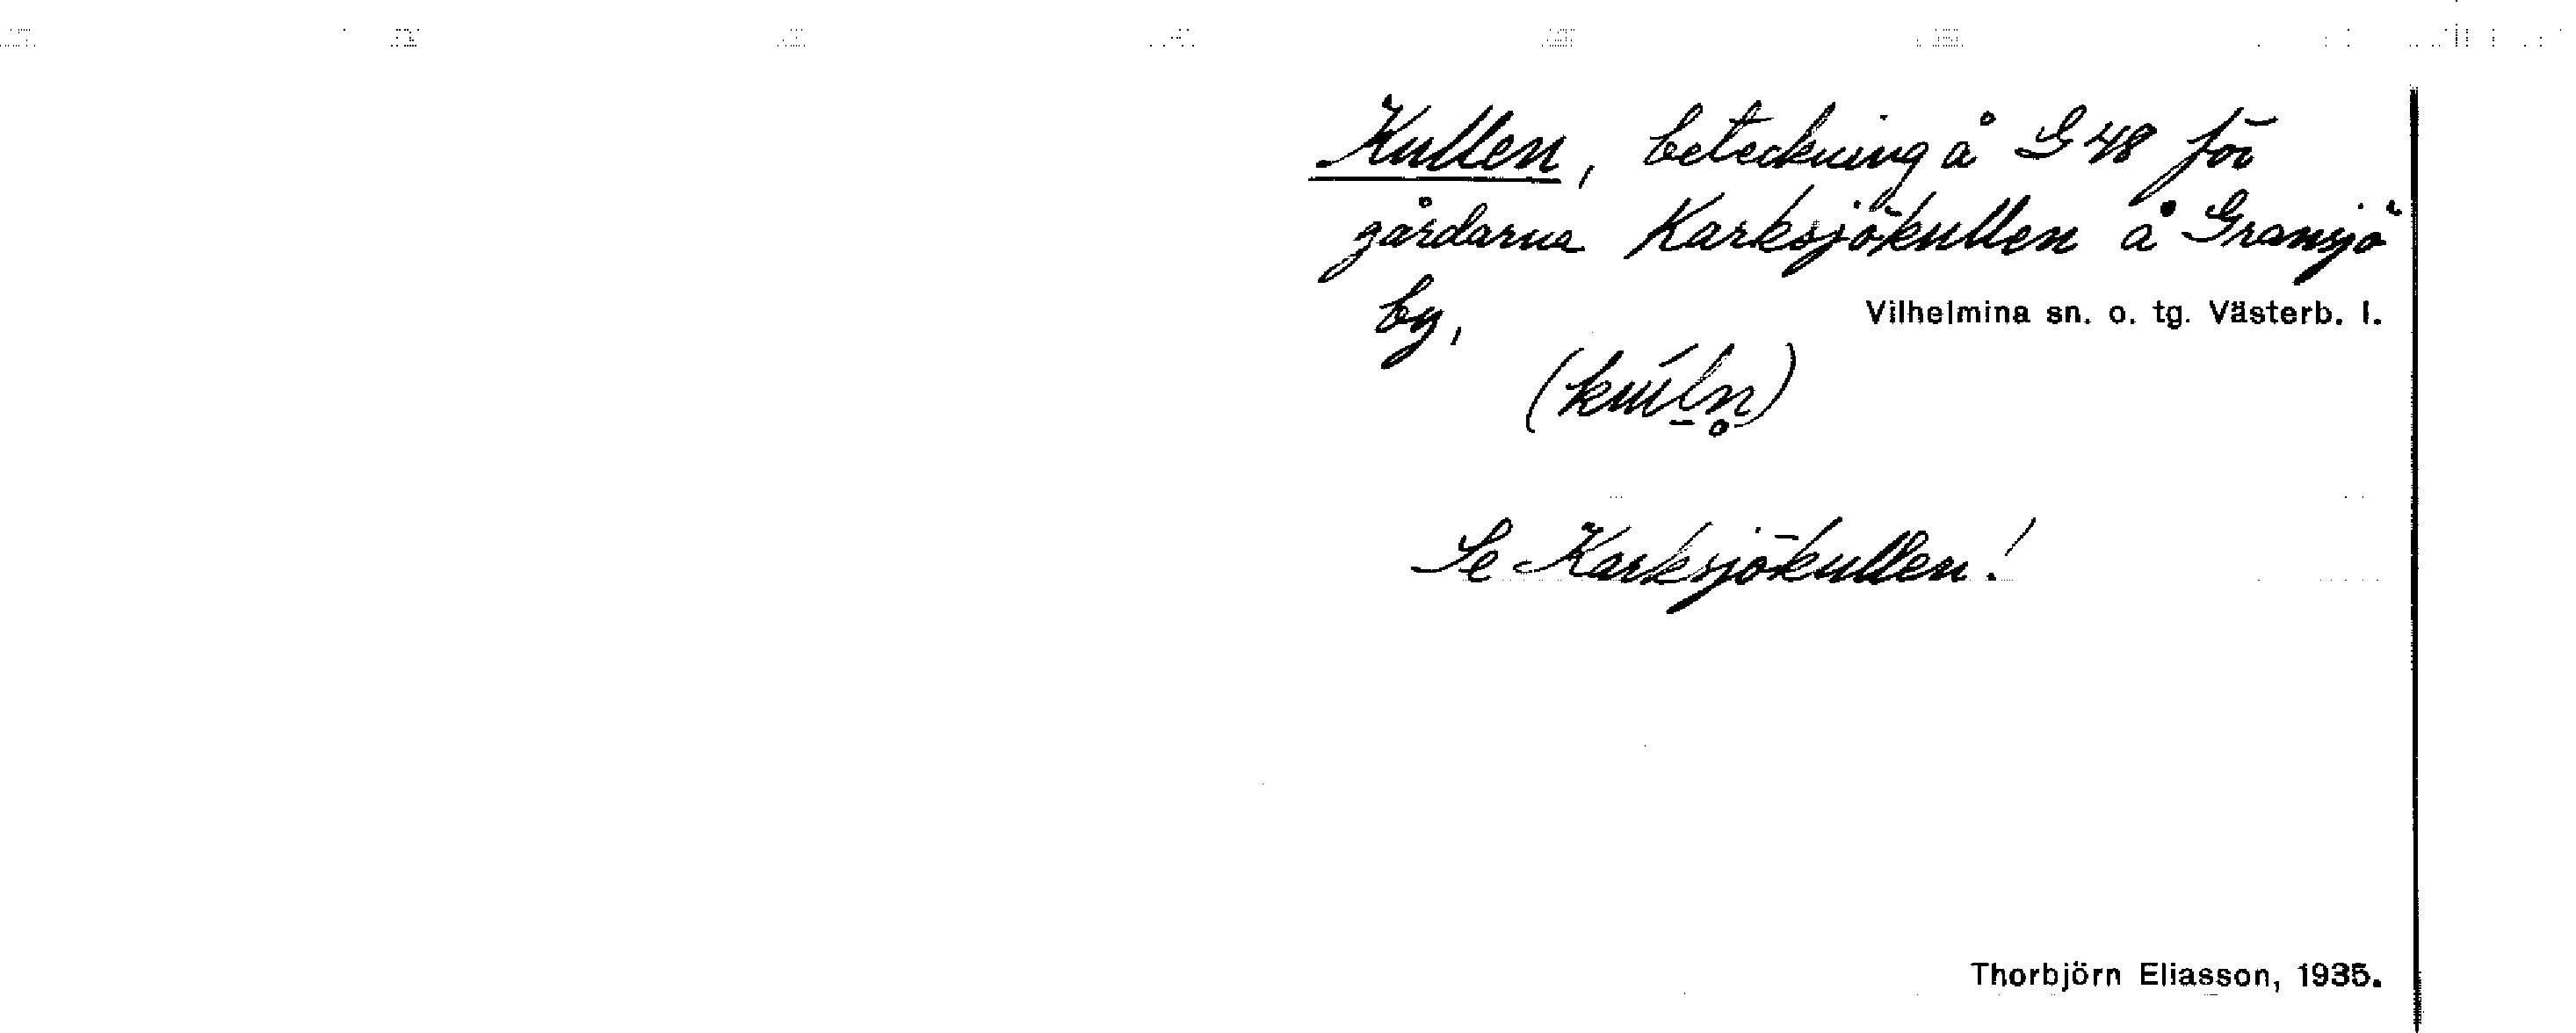 Kullen, beteckning å G 48 för
gårdarna Karksjökullen å Gransjö
by, Vilhelmina sn. o. tg. Västerb. l.
(kúl̠n̥)
Se Karksjökullen!
Thorbjörn Eliasson, 1935.